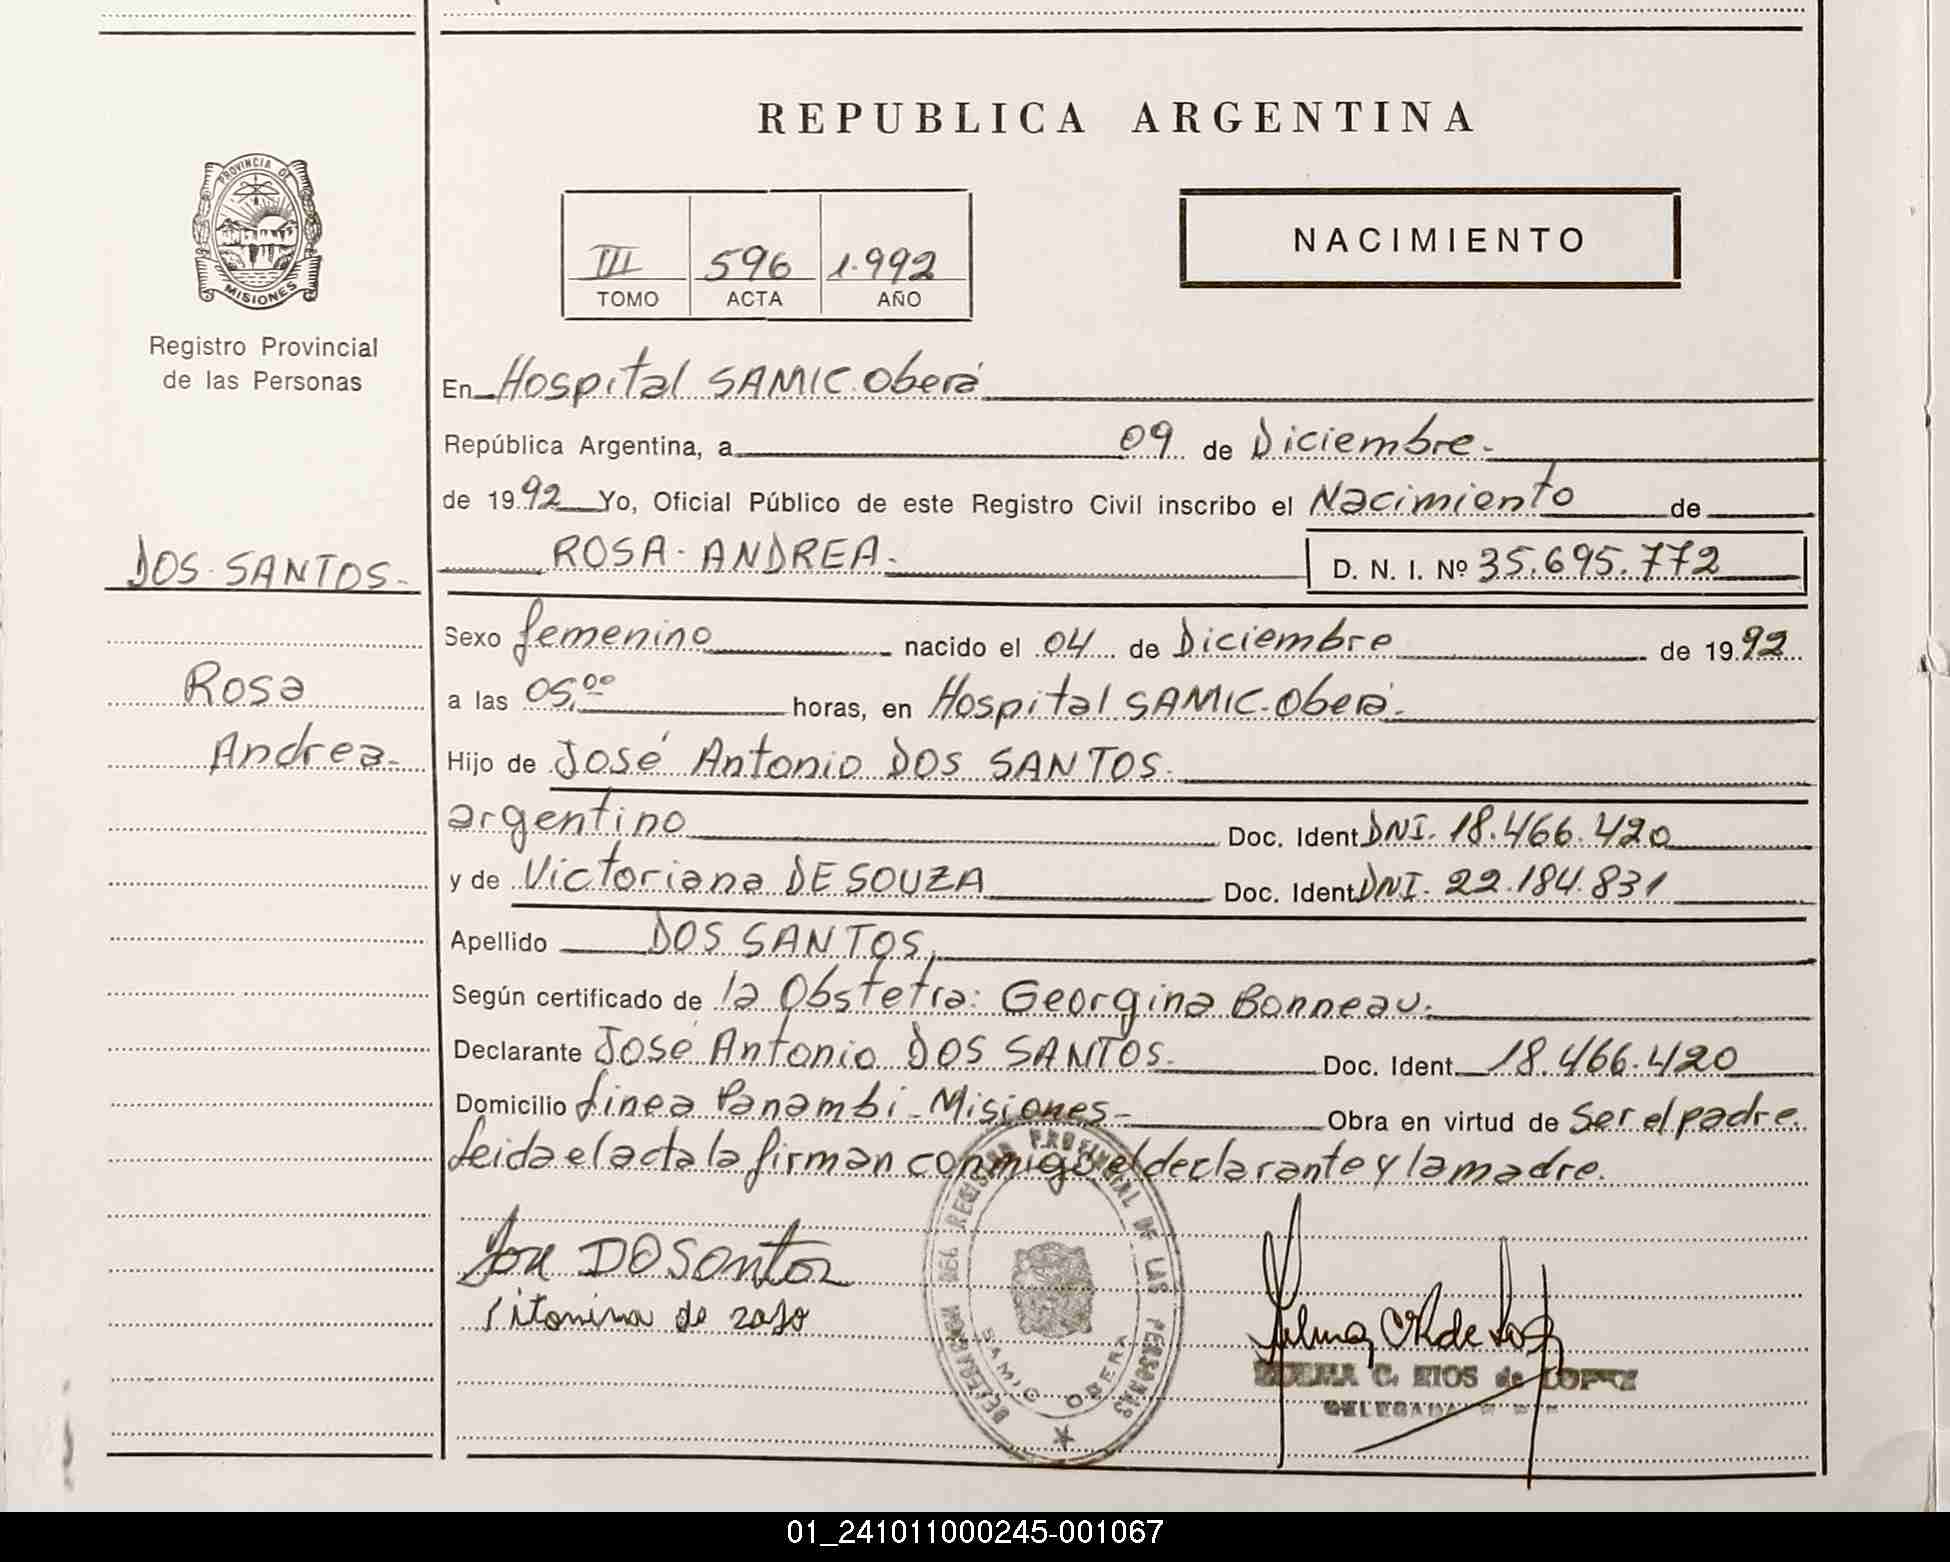 REPUBLICA ARGENTINA
PROVINCIA DE
MISIONES
Registro Provincial
de las Personas
III 596 1.992
TOMO ACTA AÑO
NACIMIENTO
En Hospital SAMIC. Oberá
República Argentina, a 09 de Diciembre.
de 1992 Yo, Oficial Público de este Registro Civil inscribo el Nacimiento de
DOS SANTOS.
ROSA ANDREA. D. N. I. Nº 35.695.772
Sexo femenino nacido el 04 de Diciembre de 1992
Rosa
Andrea.
a las 05,00 horas, en Hospital SAMIC. Oberá.
Hijo de José Antonio DOS SANTOS.
argentino Doc. Ident. DNI. 18.466.420
y de Victoriana DE SOUZA Doc. Ident. DNI. 22.184.831
Apellido DOS SANTOS,
Según certificado de la Obstetra: Georgina Bonneau.
Declarante José Antonio DOS SANTOS. Doc. Ident. 18.466.420
Domicilio Linea Panambi - Misiones - Obra en virtud de ser el padre.
Leida el acta la firman conmigo el declarante y la madre.
DELEGACION DEL REGISTRO PROVINCIAL DE LAS PERSONAS
SAMIC OBERA
C. RIOS de LOPEZ
DELEGADA
01_241011000245-001067